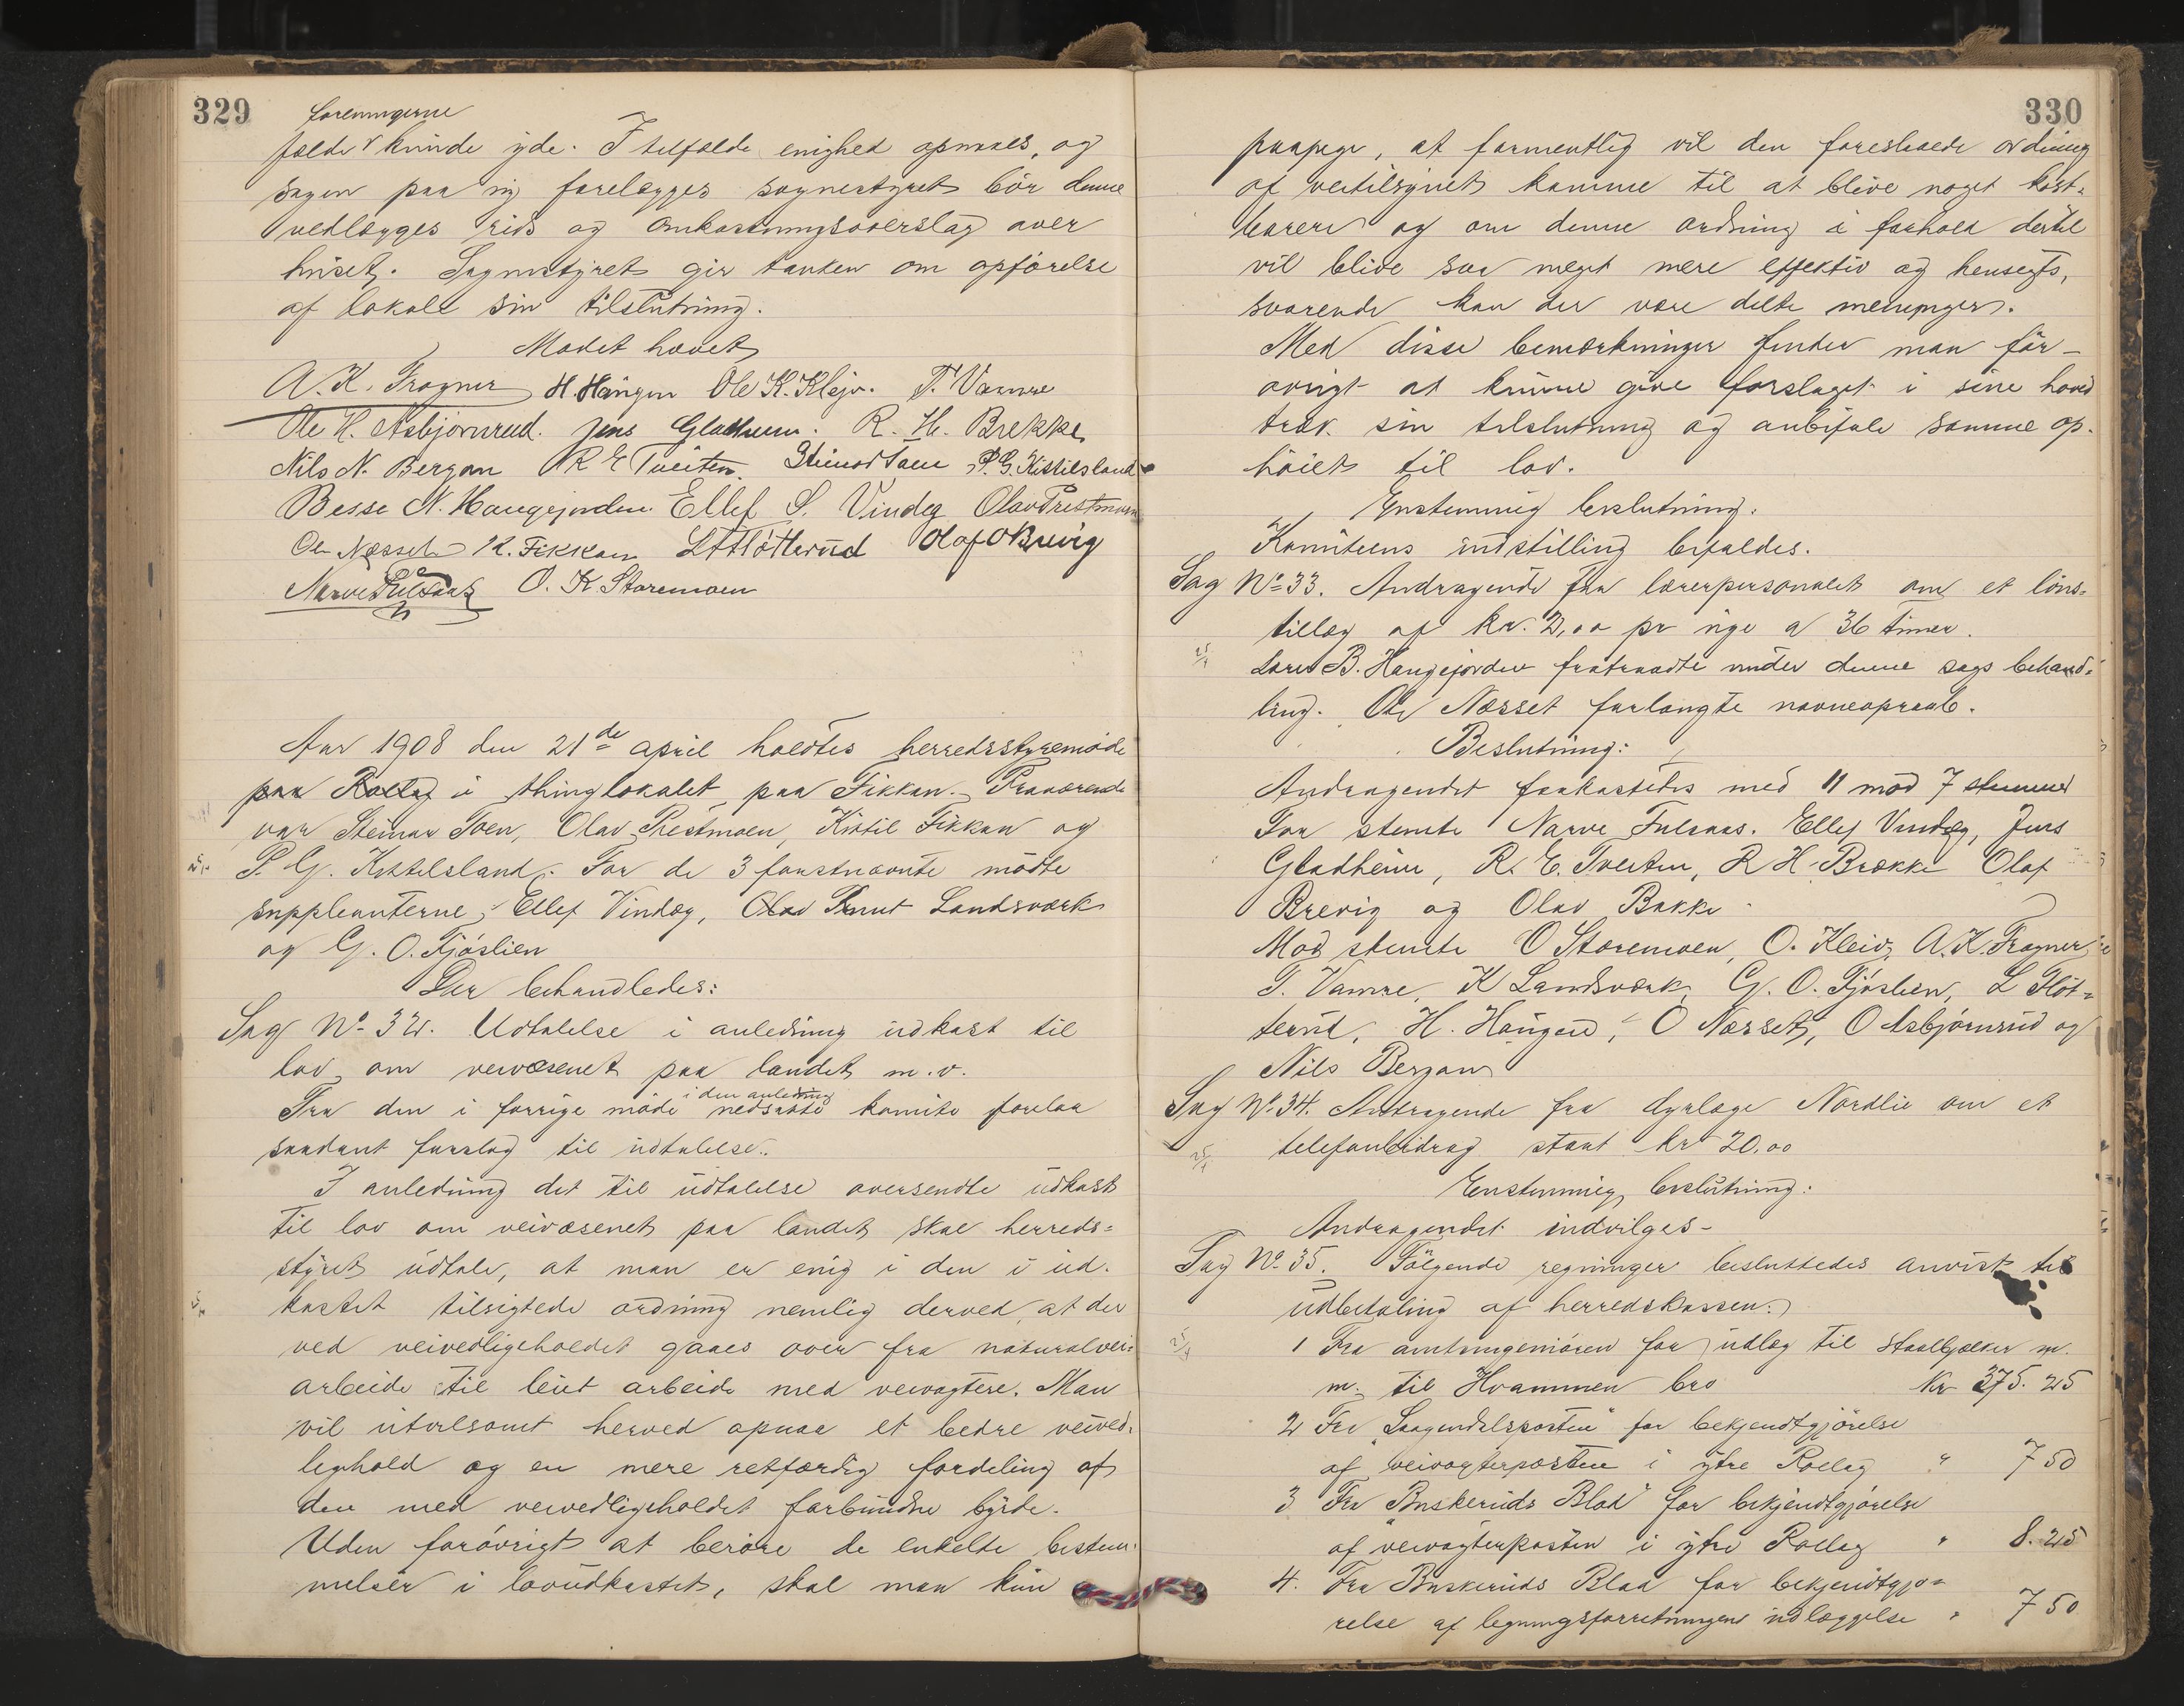 329
foreningerne
falde kunde yde. I tilfælde enighed opnaaes, og
sagen paa ny forelægges sognestyret bør denne
vedlægges rids og omkostningsoverslag over
huset. Sognestyret gir tanken om opførelse
af lokale sin tilslutning.
Mødet hævet
A. K. Fragner H. Haugen Ole K. Kleiv. T. Vamre
Ole H. Asbjørnrud. Jens Gladheim. R. H. Brekke
Nils N. Bergan R E Tveiten Steinar Toen P. G. Kittilsland
Besse N. Haugejorden. Ellef S. Vindeg Olav Prestmoen
Ole Næsset K. Fikkan L. Fløtterud Olaf O Brevig
Narve Fulsaas O. K Storemoen
Aar 1908 den 21de april holdtes herredsstyremøde
paa Rollag i thinglokalet paa Fikkan. Fraværende
var Steinar Toen, Olav Prestmoen, Kittil Fikkan og
P. G. Kittelsland. For de 3 førstnævnte mødte
suppleanterne, Ellef Vindeg, Olav Knut Landsværk
og G. O. Fjøslien
Der behandledes:
Sag No 32. Udtalelse i anledning udkast til
lov om veivæsenet paa landet m. v.
i den anledning
Fra den i forrige møde nedsatte komite forelaa
saadant forslag til udtalelse.
I anledning det til udtalelse oversendte udkast
til lov om veivæsenet paa landet skal herreds=
styret udtale, at man er enig i den i ud-
kastet tilsigtede ordning nemlig derved, at der
ved veivedligeholdet gaaes over fra naturalvei=
arbeide til leiet arbeide med veivogtere. Man
vil utvilsomt herved opnaa et bedre veived=
lighold og en mere retfærdig fordeling af
den med veivedligeholdet forbundne byrde.
Uden forøvrigt at berøre de enkelte bestem=
melser i lovudkastet, skal man kun
330
paapege, at formentlig vil den foreslaaede ordning
af veitilsynet komme til at blive noget kost=
barere og om denne ordning i forhold dertil
vil blive saa meget mere effektiv og hensegts,
svarende kan der være delte meninger.
Med disse bemærkninger finder man for-
øvrigt at kunne give forslaget i sine hoved
træk sin tilslutning og anbefale samme op-
høiet til lov.
Enstemmig beslutning:
Komiteens indstilling bifaldes.
Sag No 33. Andragende fra lærerpersonalet om et løns=
tillæg af kr. 2,00 pr uge a 36 timer.
Lærer B. Haugejorden fratraadte under denne sags behand=
ling. Ole Næsset forlangte navneopraab.
Beslutning:
Andragendet forkastedes med 11 mod 7 stemmer
For stemte Narve Fulsaas. Ellef Vindeg, Jens
Gladheim, R. E. Tveiten, R H Brække Olaf
Brevig og Olav Bakke
Mod stemte O Storemoen, O. Kleiv, A. K. Fragner
T. Vamre, K Landsværk, G. O. Fjøslien, L Fløt=
terud, H. Haugen, O Næsset, O Asbjørnrud og
Nils Bergan
Sag No 34. Andragende fra dyrlæge Nordlie om et
telefonbidrag stort kr 20,00
Enstemmig beslutning:
Andragendet indvilges-
Sag No 35. Følgende regninger besluttedes anvist til
udbetaling af herredskassen:
1 Fra amtsingeniøren for udlæg til staalbjælker m.
m. til Hvammen bro Kr 375. 25
2 Fra "Laagendalsposten" for bekjendtgjørelse
af veivogterposten i ytre Rollag " 7 50
3 Fra Buskeruds Blad for bekjendtgjørelse
af veivogterposten i ytre Rollag " 8. 25
4. Fra Buskeruds Blad for bekjendtgjø=
relse af ligningsforretningens udlæggelse " 7 50